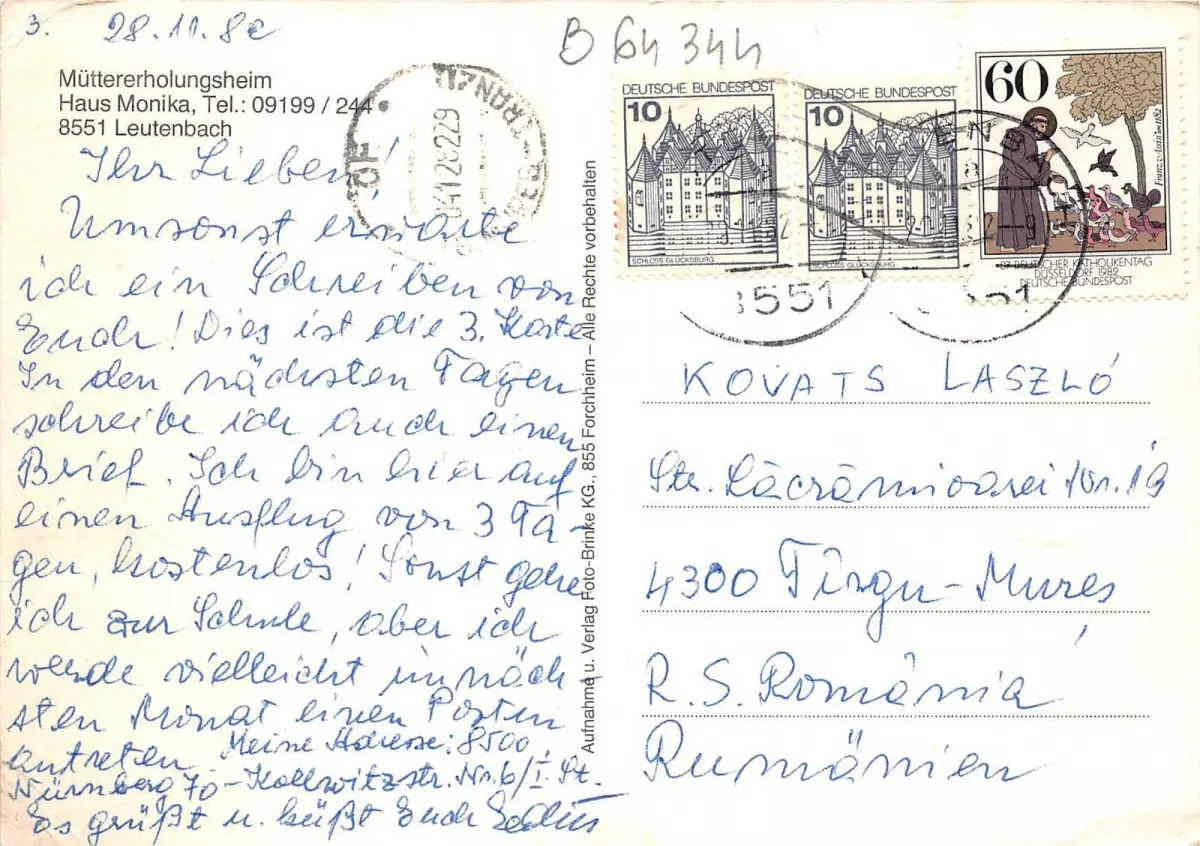 3. 28.11.82
Müttererholungsheim
Haus Monika, Tel.: 09199 / 244
8551 Leutenbach
Ihr Lieben!
Umsonst erwarte
ich ein Schreiben von
Euch! Dies ist die 3. Karte
In den nächsten Tagen
schreibe ich auch einen
Brief. Ich bin hier auf
einen Ausflug von 3 Ta-
gen, kostenlos! Sonst gehe
ich zur Schule, aber ich
werde vielleicht im näch-
sten Monat einen Posten
antreten. Meine Adresse: 8500
Nürnberg 70 - Kollwitzstr. Nr. 6/I. St.
Es grüßt u. küßt Euch
Aufnahme u. Verlag Foto-Brinke KG., 855 Forchheim – Alle Rechte vorbehalten
B 64 344
DEUTSCHE BUNDESPOST
10
SCHLOSS GLÜCKSBURG
DEUTSCHE BUNDESPOST
10
SCHLOSS GLÜCKSBURG
60
Franz von Assisi um 1182
87. DEUTSCHER KATHOLIKENTAG
DÜSSELDORF 1982
DEUTSCHE BUNDESPOST
8551
KOVATS LASZLÓ
Str. Lăcrămioarei Nr. 19
4300 Tîrgu-Mureş
R. S. România
Rumänien